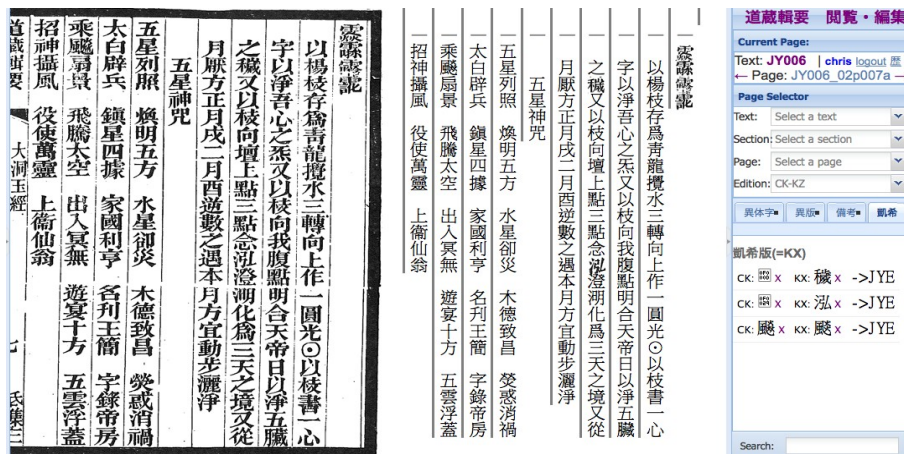 以楊枝存爲青龍攪水三轉向上作一圓光⊙以枝書一心
字以淨吾心之炁又以枝向我腹點明合天帝日以淨五臟
之穢又以枝向壇上點三點念泓澄淵化爲三天之境又從
月厭方正月戌二月酉逆數之遇本月方宜動步灑淨
五星神咒
五星列照 煥明五方 水星卻災 木德致昌 熒惑消禍
太白辟兵 鎭星四據 家國利亨 名刋王簡 字錄帝房
乘飈扇景 飛騰太空 出入冥無 遊宴十方 五雲浮蓋
招神攝風 役使萬靈 上衞仙翁
道藏輯要 大洞玉經 七 氐集三
以楊枝存爲青龍攪水三轉向上作一圓光⊙以枝書一心
字以淨吾心之炁又以枝向我腹點明合天帝日以淨五臟
之穢又以枝向壇上點三點念泓澄淵化爲三天之境又從
月厭方正月戌二月酉逆數之遇本月方宜動步灑淨
五星神咒
五星列照 煥明五方 水星卻災 木德致昌 熒惑消禍
太白辟兵 鎭星四據 家國利亨 名刋王簡 字錄帝房
乘飈扇景 飛騰太空 出入冥無 遊宴十方 五雲浮蓋
招神攝風 役使萬靈 上衞仙翁
道蔵輯要 閲覧・編集
Current Page:
Text: JY006 | chris logout 歴
← Page: JY006_02p007a →
Page Selector
Text: Select a text
Section: Select a section
Page: Select a page
Edition: CK-KZ
異体字 異版 備考 凱希
凱希版(=KX)
CK: x KX: 穢 x ->JYE
CK: x KX: 泓 x ->JYE
CK: 飈 x KX: 飈 x ->JYE
Search: